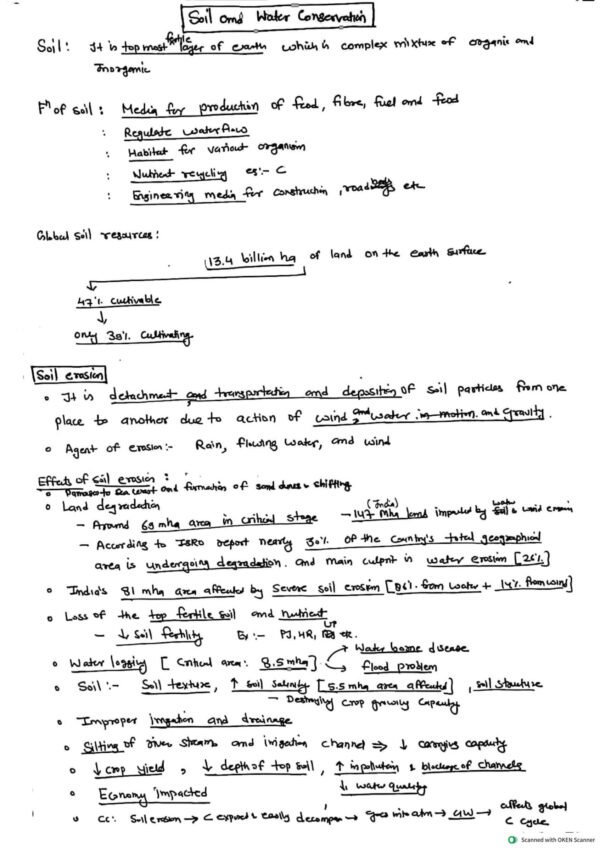 Soil and Water Conservation
Soil: It is top most fertile layer of earth which is complex mixture of organic and
Inorganic
Fⁿ of soil: Media for production of feed, fibre, fuel and food
: Regulate water flow
: Habitat for various organism
: Nutrient recycling eg:- C
: Engineering media for construction, road etc
Global soil resources:
13.4 billion ha of land on the earth surface
↓
47% cultivable
↓
only 38% cultivating
Soil erosion
• It is detachment and transportation and deposition of soil particles from one
place to another due to action of wind and water in motion and Gravity.
• Agent of erosion:- Rain, flowing water, and wind
Effects of soil erosion:
• Damage to sea coast and formation of sand dunes & shifting
• Land degradation
- Around 69 mha area in critical stage - 147 Mha land (India) impacted by water & wind erosion
- According to ISRO report nearly 30% of the country's total geographical
area is undergoing degradation. and main culprit is water erosion [26%]
• India's 81 mha area affected by severe soil erosion [86% from water + 14% from wind]
• Loss of the top fertile soil and nutrient
- ↓ soil fertility Ex:- PJ, HR, UP etc.
• Water logging [Critical area: 8.5 mha] → Water borne disease
→ flood problem
• Soil:- Soil texture, ↑ soil salinity [5.5 mha area affected], soil structure
- Destroying crop growing capacity
• Improper irrigation and drainage
• Silting of river streams and irrigation channel ⇒ ↓ carrying capacity
• ↓ crop yield, ↓ depth of top soil, ↑ in pollution & blockage of channels
↓ water quality
• Economy impacted
• CC: Soil erosion → C exposed & easily decompose → goes into atm → GW → affects global
C cycle
Scanned with OKEN Scanner